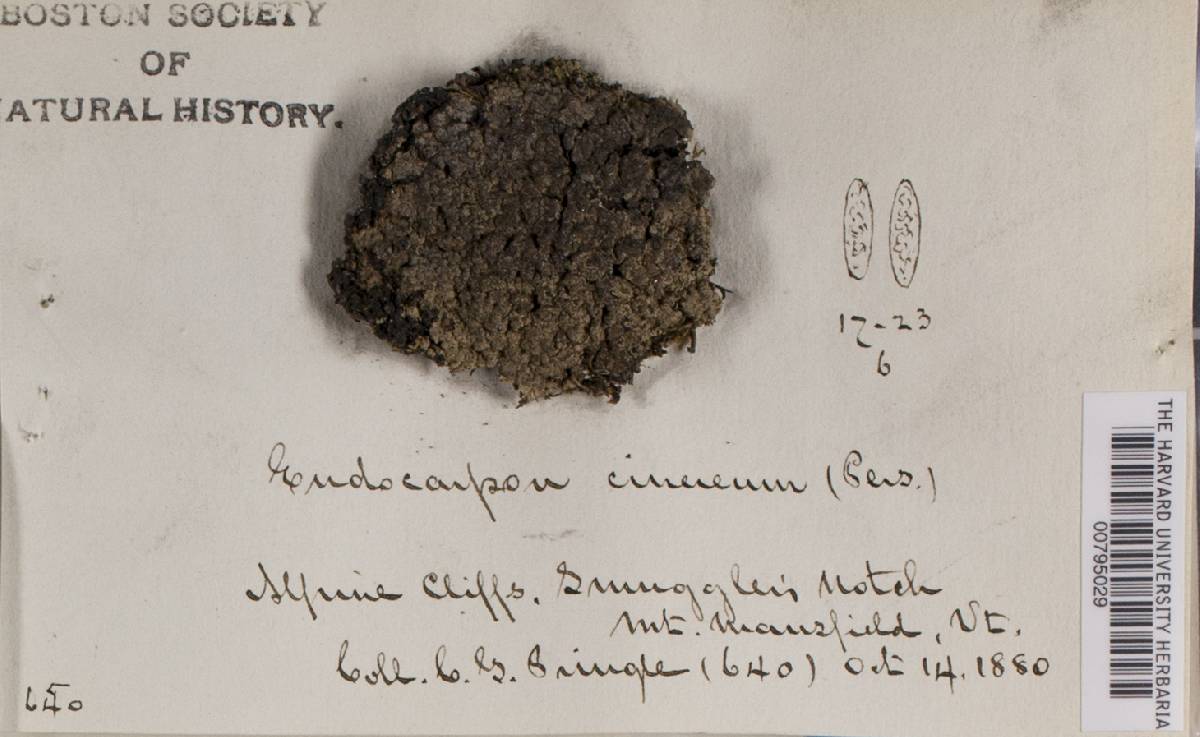 BOSTON SOCIETY
OF
NATURAL HISTORY.
17-23
6
Endocarpon cinereum (Pers.)
Alpine Cliffs, Smuggler's Notch
Mt. Mansfield, Vt.
Coll. C. G. Pringle (640) Oct 14, 1880
THE HARVARD UNIVERSITY HERBARIA
00795029